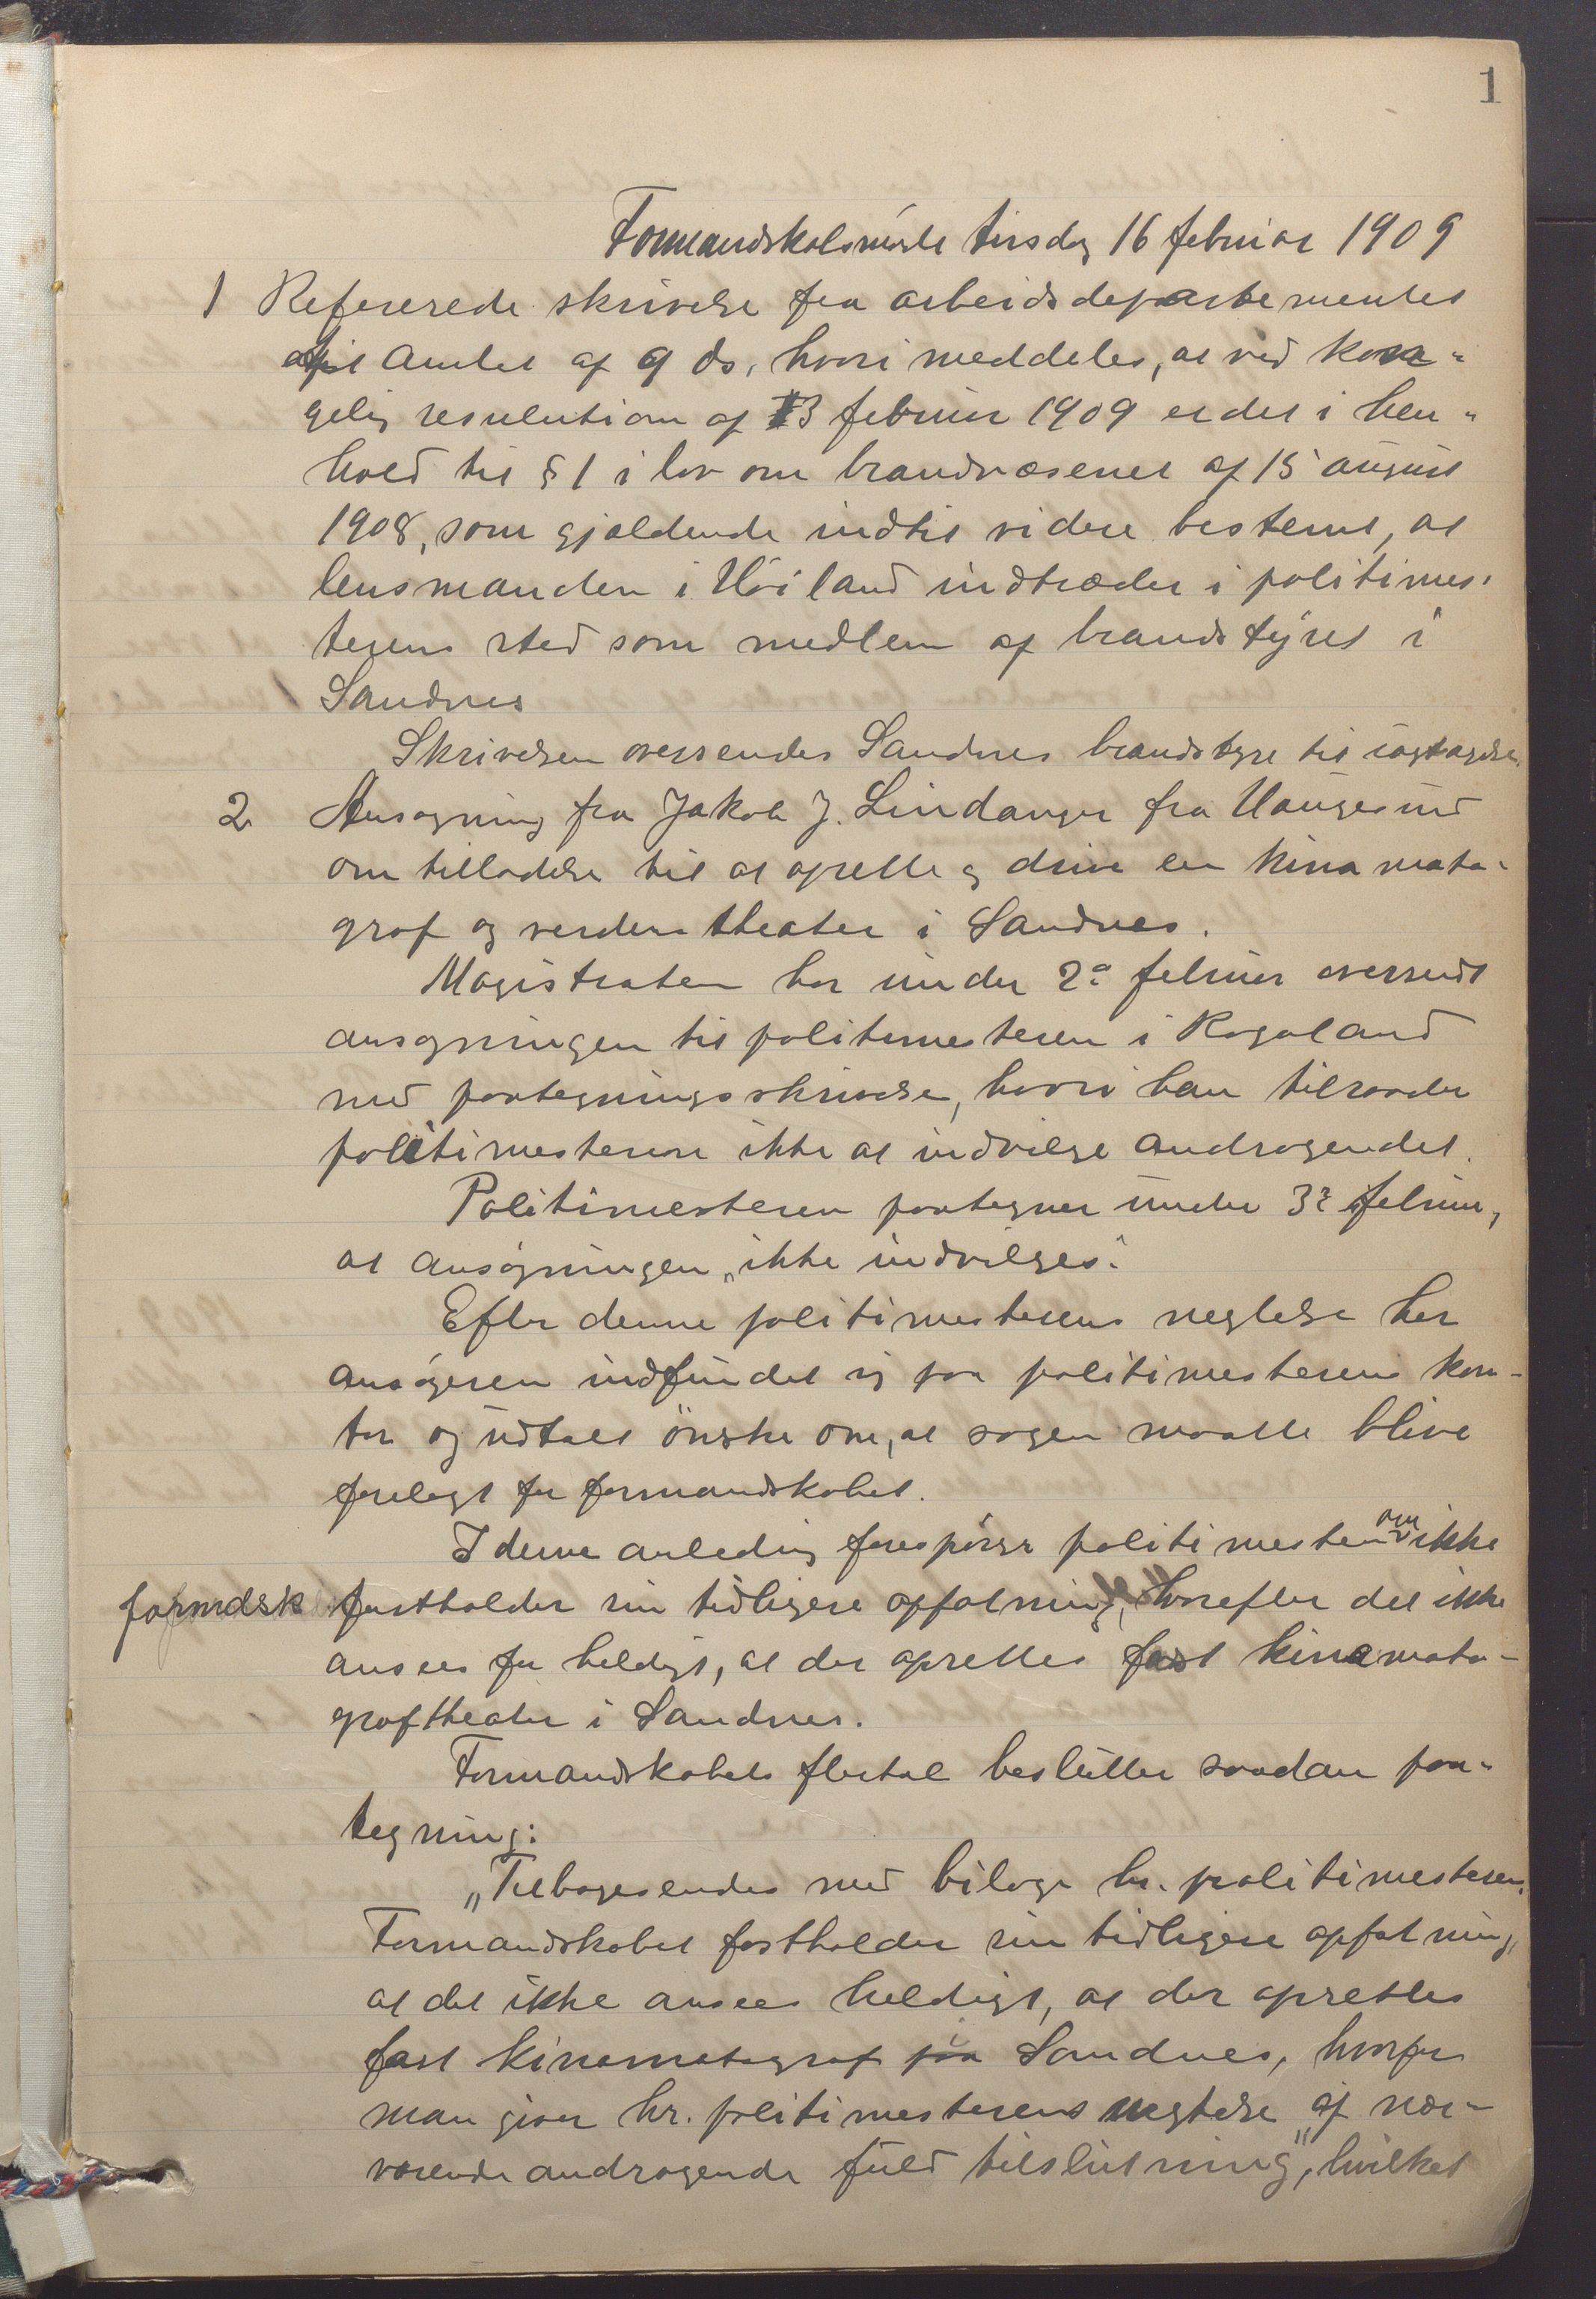 1
Formandskabsmøde tirsdag 16 februar 1909
1 Refererede skrivelse fra arbeidsdepartementet
til Amtet af 9 ds, hvori meddeles, at ved kon-
gelig resulution af 3 februar 1909 er det i hen-
hold til § 1 i lov om brandvæsenet af 15 august
1908, som gjældende indtil videre bestemt, at
lensmanden i Höiland indtræder i politimes-
terens sted som medlem af brandstyret i
Sandnes
Skrivelsen oversendes Sandnes brandstyre til iagttagelse.
2 Ansøgning fra Jakob J. Lindanger fra Haugesund
om tilladelse til at oprette og drive en kinamato-
graf og verdenstheater i Sandnes.
Magistraten har under 2a februar oversendt
ansøgningen til politimesteren i Rogaland
med paategningsskrivelse, hvori han tilraader
politimesteren ikke at indvilge andragendet.
Politimesteren paategner under 3? februar,
at ansøgningen „ikke indvilges“.
Efter denne politimesterens neglelse har
ansøgeren indfundet sig paa politimesterens kon-
tor og udtalt ønske om, at sagen maatte blive
forelagt for formandskabet.
I denne anledning forespörger politimesteren om ikke
formdsk fastholder sin tidligere opfatning, hvorefter det ikke
ansees for heldigt, at der oprettes fast kinemato-
graftheater i Sandnes.
Formandskabets flertal beslutter saadan paa-
tegning:
„Tilbagesendes med bilage hr. politimesteren.
Formandskabet fastholder sin tidligere opfatning,
at det ikke ansees heldigt, at der oprettes
fast kinematograf paa i Sandnes, hvorfor
man giver hr. politimesterens negtelse af nær-
værende andragende fuld tilslutning“, hvilket